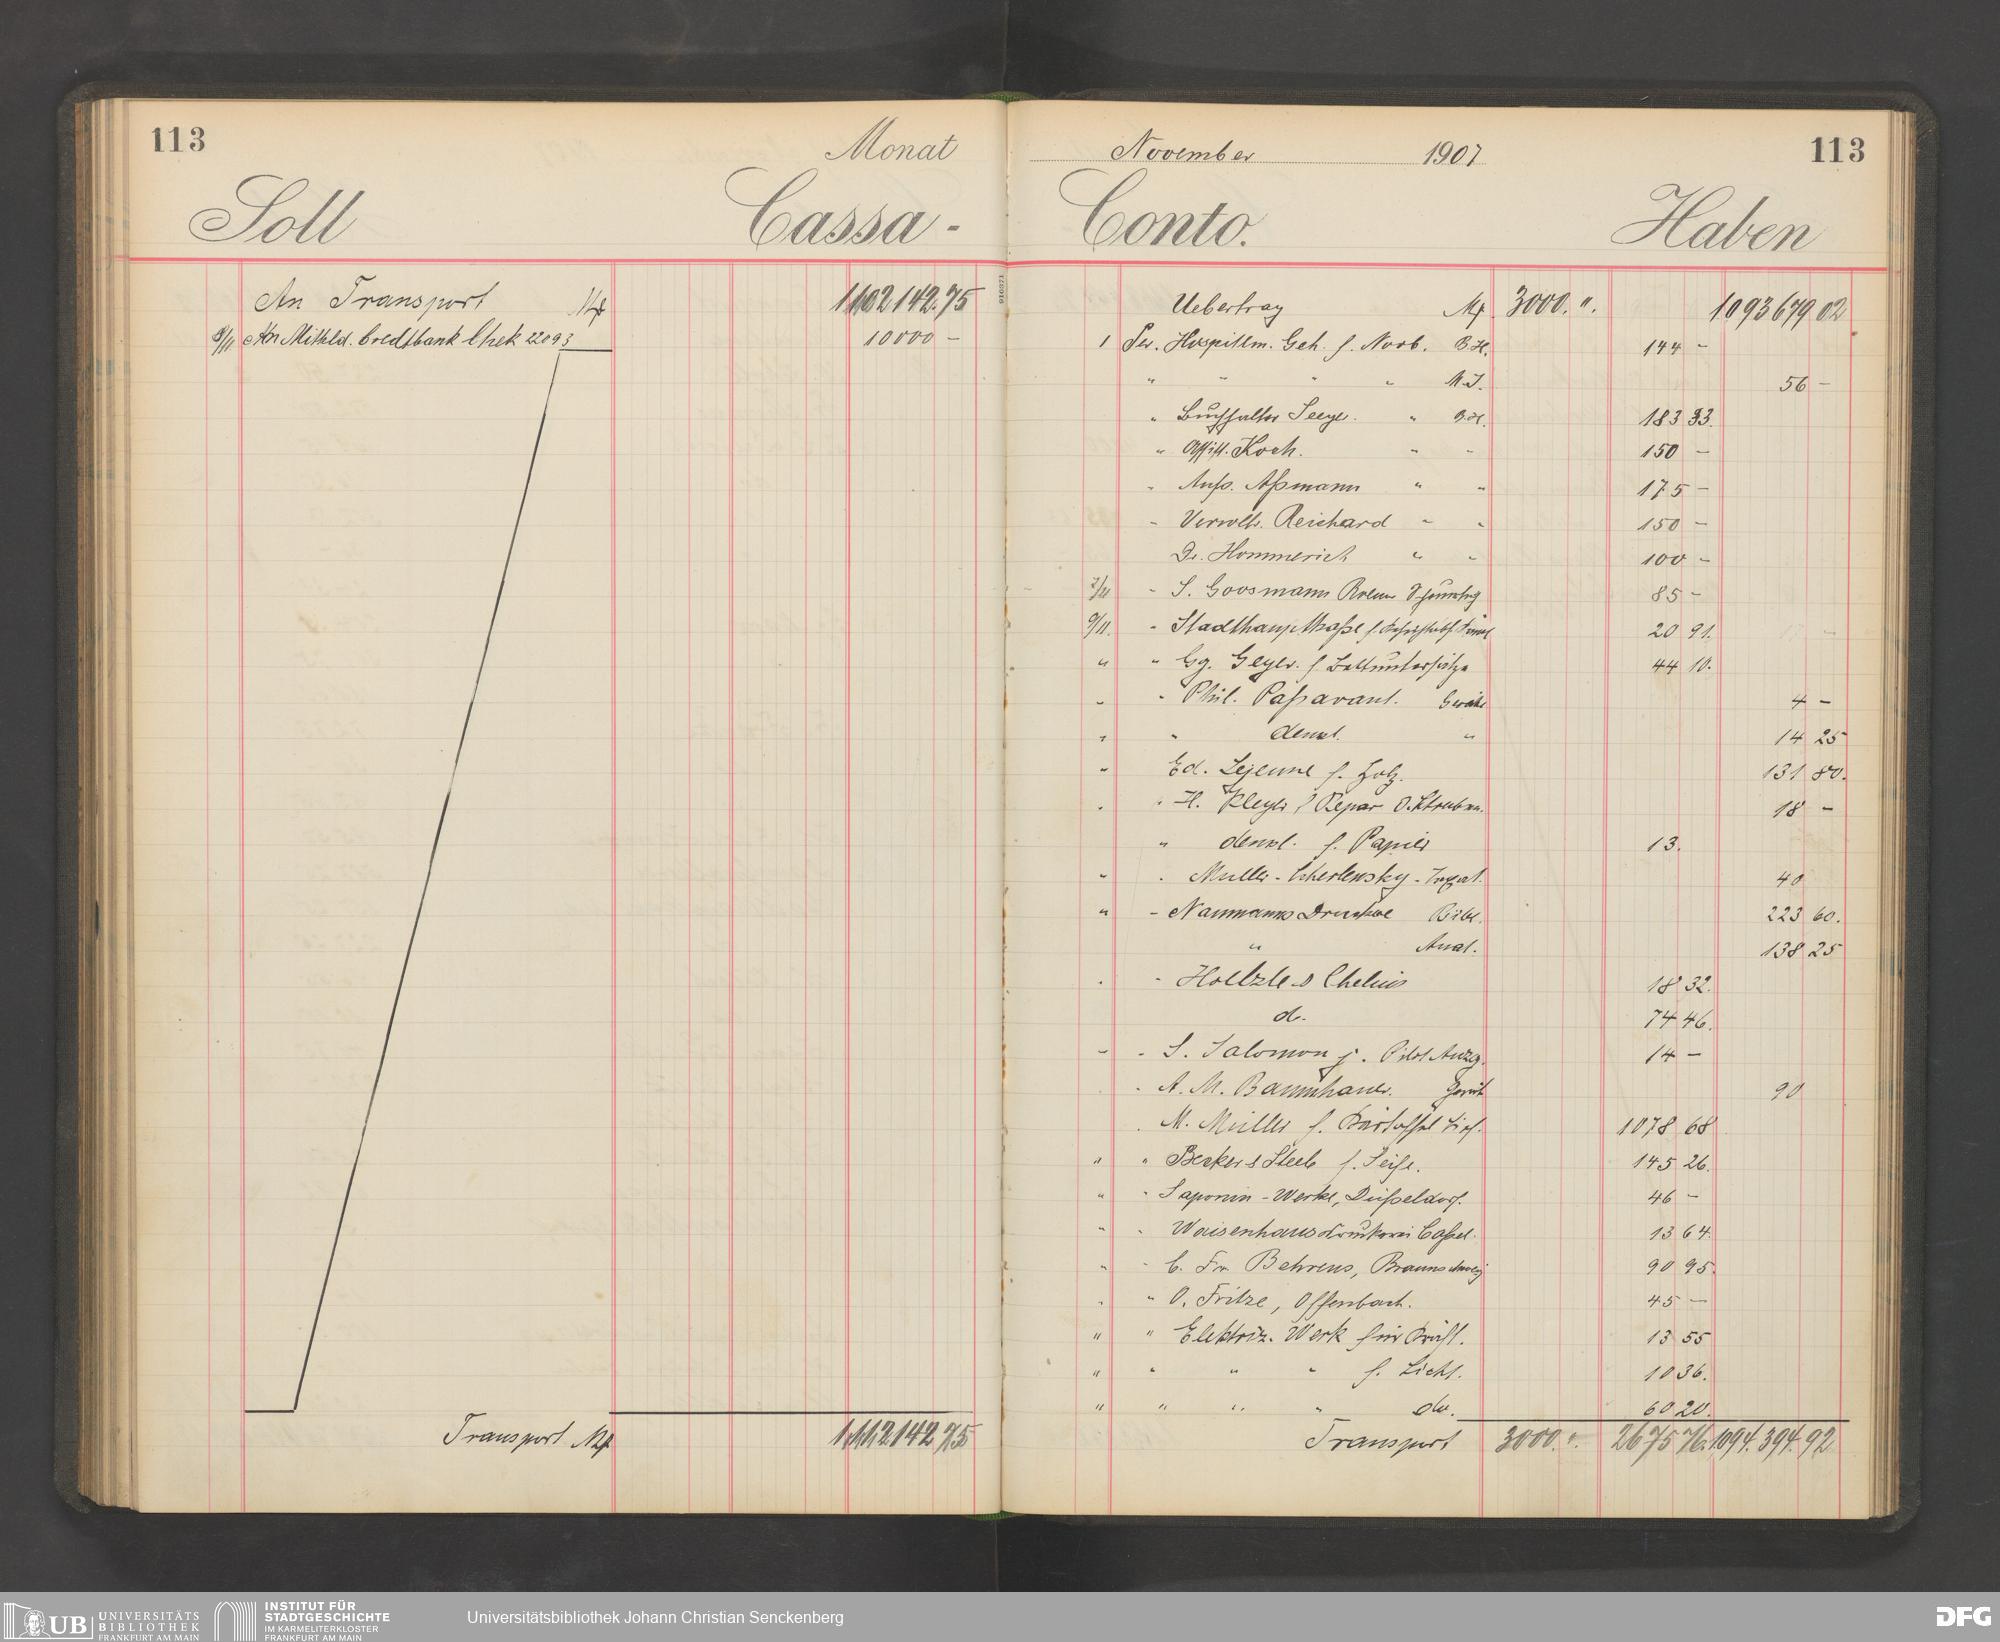 113
Monat
November 1907
113
Soll
Cassa -
Conto.
Haben
An Transport Mk 1,102,142.75
9/11 An Mitteld. Creditbank Chek 22093 10000 -
Transport Mk 1,112,142.75
910371
Uebertrag Mk 3000. ". 1093679 02
1 Per. Hospitlm. Geh. f. Novb. B.H. 144 -
" " " " M.I. 56 -
" Buchhalter Seeger. " B.H. 183 33.
" Assist. Koch. " " 150 -
" Aufs. Aßmann " " 175 -
" Verwltr. Reichard " " 150 -
Dr. Hommerich " " 100 -
7/11 " S. Goosmann 85 -
9/11. " Stadthauptkaße f. 20 91.
" " Gg. Geyer. f. Bettuntersätze 44 10.
" " Phil. Paßavant. Geräte 4 -
" " densl. " 14 25
" Ed. Lejeune f. Holz. 131 80.
" " H. Kleyer f. Repar 18 -
" densl. f. Papier 13.
" " Muller - - Inserat. 40
" " Naumanns Druckerei Bibl. 223 60.
" Anat. 138 25
" " Holtzle & Chelius 18 32.
do. 74 46.
" " S. Salomon j. 14 -
" A. M. Baumhauer. Gerät 90
" M. Müller f. Kartoffel Lief. 1078 68
" " Becker & Steeb f. Seife. 145 26.
" " Saponin - Werke, Düßeldorf. 46 -
" " Waisenhausdruckerei Caßel. 13 64.
" " C. Fr. Behrens, Braunschweig 90 95.
" " O. Fritze, Offenbach. 45 -
" " Elektriz. Werk für Kraft. 13 55
" " " " f. Licht. 10 36.
" " " " do. 60 20.
Transport 3000. ". 2675 76. 1094.394.92
UB UNIVERSITÄTS
BIBLIOTHEK
FRANKFURT AM MAIN
INSTITUT FÜR
STADTGESCHICHTE
IM KARMELITERKLOSTER
FRANKFURT AM MAIN
Universitätsbibliothek Johann Christian Senckenberg
DFG